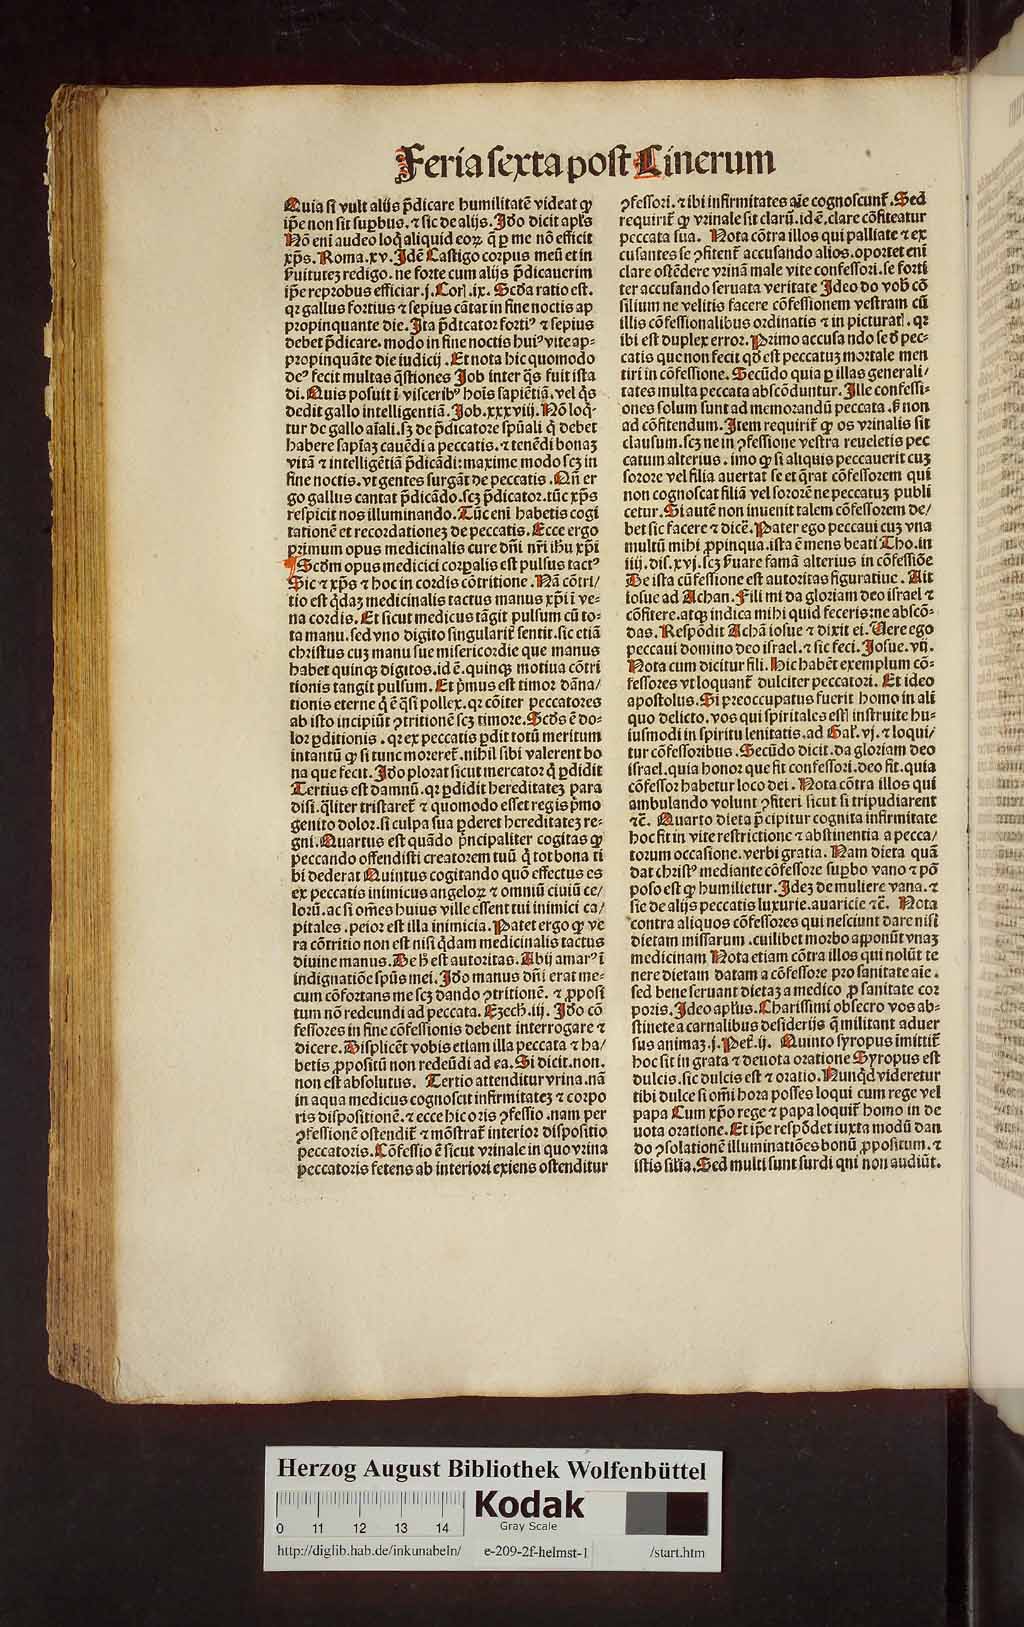 Feria sexta post Cinerum
Quia si vult alijs p̃dicare humilitatẽ videat ꝙ
ip̃e non sit supbus. ⁊ sic de alijs. Jdo dicit apl's
Nõ eni audeo loq̃ aliquid eoꝝ q̃ p me nõ efficit
xp̃s. Roma.xv. Jdẽ Castigo corpus meũ et in
ƀuitutez redigo. ne forte cum alijs p̃dicauerim
ip̃e reprobus efficiar.j.Coꝝ.ix. Scd̃a ratio est.
qꝛ gallus fortius ⁊ sepius cãtat in fine noctis ap
propinquante die. Jta p̃dicator forti⁹ ⁊ sepius
debet p̃dicare. modo in fine noctis hui⁹ vite ap-
propinquãte die iudicij. Et nota hic quomodo
de⁹ fecit multas q̃stiones Job inter q̃s fuit ista
di. Quis posuit i visceribꝰ hois sapiẽtiã. vel q̃s
dedit gallo intelligentiã. Job.xxxviij. Nõ loq̃-
tur de gallo aĩali. sꝫ de p̃dicatore spũali q̃ debet
habere sapĩaz cauẽdi a peccatis. ⁊ tenẽdi bonaz
vitã ⁊ intelligẽtiã p̃dicãdi: maxime modo scz in
fine noctis. vt gentes surgãt de peccatis. Qñ er
go gallus cantat p̃dicãdo. scz p̃dicator. tũc xp̃s
respicit nos illuminando. Tũc eni habetis cogi
tationẽ et recordationez de peccatis. Ecce ergo
primum opus medicinalis cure dñi nr̃i ihu xp̃i
¶ Scdm opus medicici corpalis est pulsus tact⁹
Sic ⁊ xp̃s ⁊ hoc in cordis cõtritione. Nã cõtri/
tio est q̃daz medicinalis tactus manus xp̃i i ve-
na cordis. Et sicut medicus tãgit pulsum cũ to-
ta manu. sed vno digito singularit̃ sentit. sic etiã
christus cuz manu sue misericordie que manus
habet quinqꝫ digitos. id ẽ. quinqꝫ motiua cõtri
tionis tangit pulsum. Et p̃mus est timor dãna/
tionis eterne q̃ ẽ q̃si pollex. qꝛ cõiter peccatores
ab isto incipiũt ꝯtritionẽ scz timore. Scds ẽ do-
lor pditionis. qꝛ ex peccatis pdit totũ meritum
intantũ ꝙ si tunc moreret̃. nihil sibi valerent bo
na que fecit. Jdo plorat sicut mercator q̃ pdidit
Tertius est damnũ. qꝛ pdidit hereditatez para
disi. q̃liter tristaret̃ ⁊ quomodo esset regis p̃mo
genito dolor. si culpa sua pderet hereditatez re-
gni. Quartus est quãdo p̃ncipaliter cogitas ꝙ
peccando offendisti creatorem tuũ q̃ tot bona ti
bi dederat Quintus cogitando quõ effectus es
ex peccatis inimicus angeloꝝ ⁊ omniũ ciuiũ ce/
lorũ. ac si om̃es huius ville essent tui inimici ca/
pitales. peior est illa inimicia. Patet ergo ꝙ ve
ra cõtritio non est nisi q̃dam medicinalis tactus
diuine manus. De ħ est autoritas. Abij amar⁹ ĩ
indignatiõe spũs mei. Jdo manus dñi erat me-
cum cõfortans me scz dando ꝯtritionẽ. ⁊ pposi
tum nõ redeundi ad peccata. Ezech.iij. Jdo cõ
fessores in fine cõfessionis debent interrogare ⁊
dicere. Displicẽt vobis etiam illa peccata ⁊ ha/
betis ppositũ non redeũdi ad ea. Si dicit. non.
non est absolutus. Tertio attenditur vrina. nã
in aqua medicus cognoscit infirmitatez ⁊ corpo
ris dispositionẽ. ⁊ ecce hic oris ꝯfessio. nam per
ꝯfessionẽ ostendit̃ ⁊ mõstrat̃ interior dispositio
peccatoris. Cõfessio ẽ sicut vrinale in quo vrina
peccatoris fetens ab interiori exiens ostenditur
ꝯfessori. ⁊ ibi infirmitates aĩe cognoscunt̃. Sed
requirit̃ ꝙ vrinale sit clarũ. id ẽ. clare cõfiteatur
peccata sua. Nota cõtra illos qui palliate ⁊ ex
cusantes se ꝯfitent̃ accusando alios. oportet eni
clare ostẽdere vrinã male vite confessori. se forti
ter accusando seruata veritate Jdeo do vob̃ cõ
silium ne velitis facere cõfessionem vestram cũ
illis cõfessionalibus ordinatis ⁊ in picturat̃. qꝛ
ibi est duplex error. Primo accusando se d̃ pec-
catis que non fecit qd̃ est peccatuz mortale men
tiri in cõfessione. Secũdo quia p illas generali/
tates multa peccata abscõduntur. Jlle confessi-
ones solum sunt ad memorandũ peccata. ƀ non
ad cõfitendum. Jtem requirit̃ ꝙ os vrinalis sit
clausum. scz ne in ꝯfessione vestra reueletis pec
catum alterius. imo ꝙ si aliquis peccauerit cuz
sorore vel filia auertat se et q̃rat cõfessorem qui
non cognoscat filiã vel sororẽ ne peccatuz publi
cetur. Si autẽ non inuenit talem cõfessorem de/
bet sic facere ⁊ dicẽ. Pater ego peccaui cuz vna
multũ mihi ppinqua. ista ẽ mens beati Tho. in
iiij. dis. xvj. scz ƀuare famã alterius in cõfessiõe
De ista cũfessione est autoritas figuratiue. Ait
iosue ad Achan. Fili mi da gloriam deo israel ⁊
cõfitere. atqꝫ indica mihi quid feceris: ne abscõ-
das. Respõdit Achã iosue ⁊ dixit ei. Uere ego
peccaui domino deo israel. ⁊ sic feci. Josue.vij.
Nota cum dicitur fili. Hic habẽt exemplum cõ-
fessores vt loquant̃ dulciter peccatori. Et ideo
apostolus. Si preoccupatus fuerit homo in ali
quo delicto. vos qui spiritales estꝭ instruite hu-
iusmodi in spiritu lenitatis. ad Gal̃. vj. ⁊ loqui/
tur cõfessoribus. Secũdo dicit. da gloriam deo
israel. quia honor que fit confessori. deo fit. quia
cõfessor habetur loco dei. Nota cõtra illos qui
ambulando volunt ꝯfiteri sicut si tripudiarent
⁊c̃. Quarto dieta p̃cipitur cognita infirmitate
hoc fit in vite restrictione ⁊ abstinentia a pecca/
torum occasione. verbi gratia. Nam dieta quã
dat christ⁹ mediante cõfessore supbo vano ⁊ põ
poso est ꝙ humilietur. Jdez de muliere vana. ⁊
sic de alijs peccatis luxurie. auaricie ⁊c̃. Nota
contra aliquos cõfessores qui nesciunt dare nisi
dietam missarum. cuilibet morbo apponũt vnaz
medicinam Nota etiam cõtra illos qui nolũt te
nere dietam datam a cõfessore pro sanitate aĩe.
sed bene seruant dietaz a medico p sanitate cor
poris. Jdeo apl'us. Charissimi obsecro vos ab-
stinete a carnalibus desiderijs q̃ militant aduer
sus animaz.j.Pet̃.ij. Quinto syropus imittit̃
hoc sit in grata ⁊ deuota oratione Syropus est
dulcis. sic dulcis est ⁊ oratio. Nunqd videretur
tibi dulce si om̃i hora posses loqui cum rege vel
papa Cum xp̃o rege ⁊ papa loquit̃ homo in de
uota oratione. Et ip̃e respõdet iuxta modũ dan
do ꝯsolationẽ illuminatiões bonũ ppositum. ⁊
istis silia. Sed multi sunt surdi qni non audiũt.
Herzog August Bibliothek Wolfenbüttel
0 11 12 13 14
Kodak
Gray Scale
http://diglib.hab.de/inkunabeln/ e-209-2f-helmst-1 /start.htm